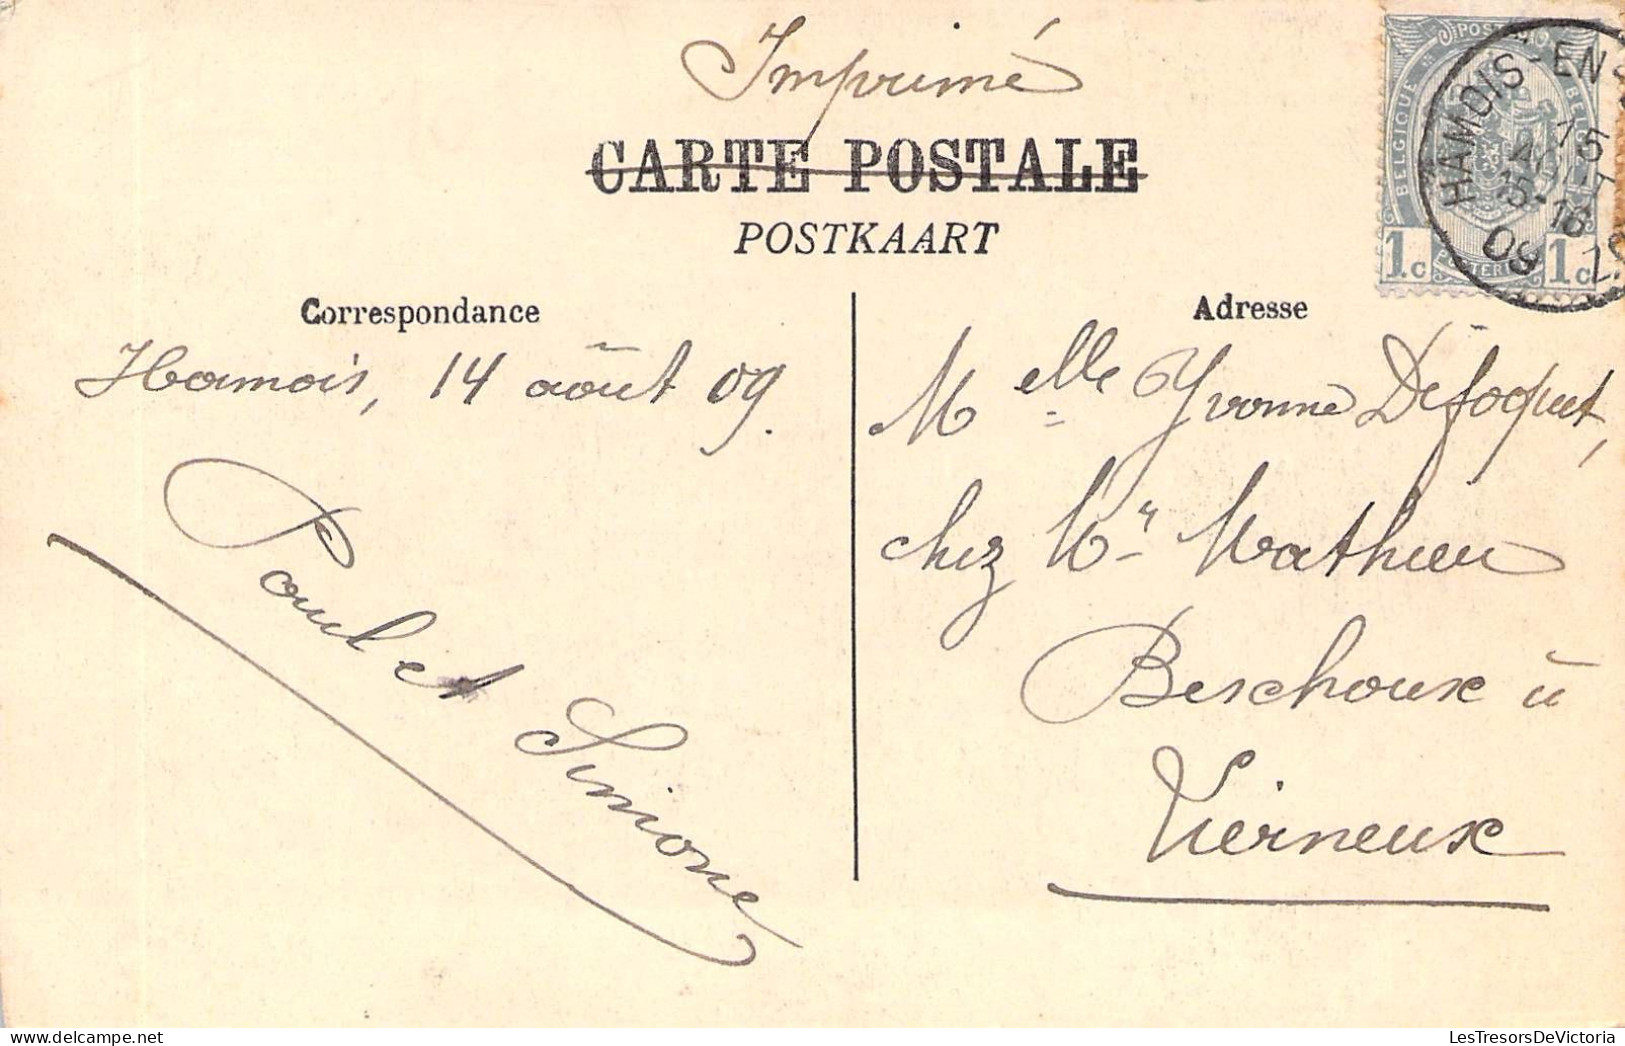 Imprimé
CARTE POSTALE
POSTKAART
Correspondance
Hamois, 14 août 09.
Paul et Simone
Adresse
Melle Yvonne Defoquet,
chez Mr Mathieu
Beschoux à
Vierneux
BELGIQUE
1c 1c
HAMOIS-EN
15
AOUT
15-16
09
LesTresorsDeVictoria